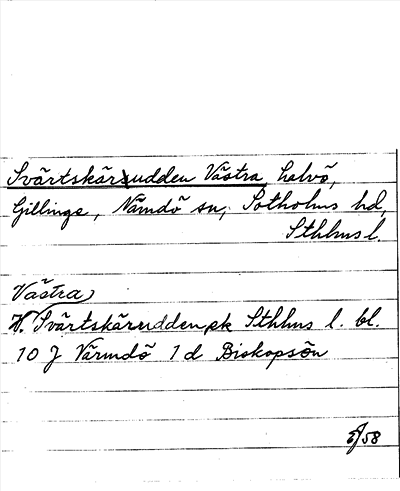 Svärtskärsudden Västra, halvö,
Gillinge, Nämdö sn, Sotholms hd,
Sthlms l.
Västra)
V. Svärtskärudden ek Sthlms l. bl.
10 J Värmdö 1 d Biskopsön
/58